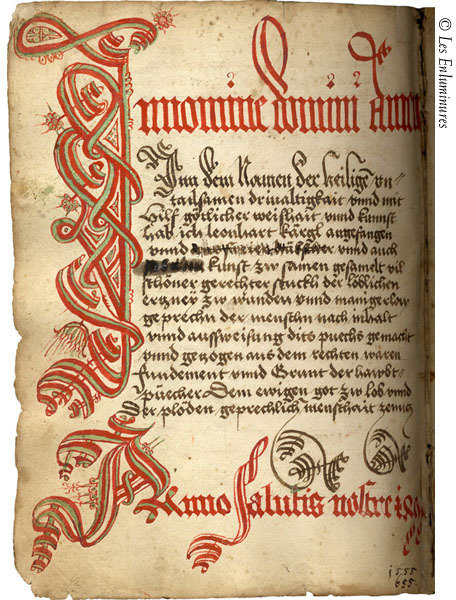 In nomine domini Amen
Inn dem Namen der heilige vn-
tailsamen driualtigkait vnnd mit
hilf gotlicher weishait vnnd kunnst
hab ich leonhart käegl angefangen
vnnd vnd auch
kunst zw samen gesamelt vil
schöner gerechter stuckli der löblichen
ertzney zw wunden vnnd mangerlay
geprechn der menschn nach inhalt
vnnd aussweisung dits puechs gemacht
vnnd gezogen aus dem rechten waren
fundement vnnd Grunt der hawbt-
püecher Dem ewigen got zw lob vnnd
der plöden geprechlich menschait zenutz
Anno Salutis nostre
1555
655
© Les Enluminures